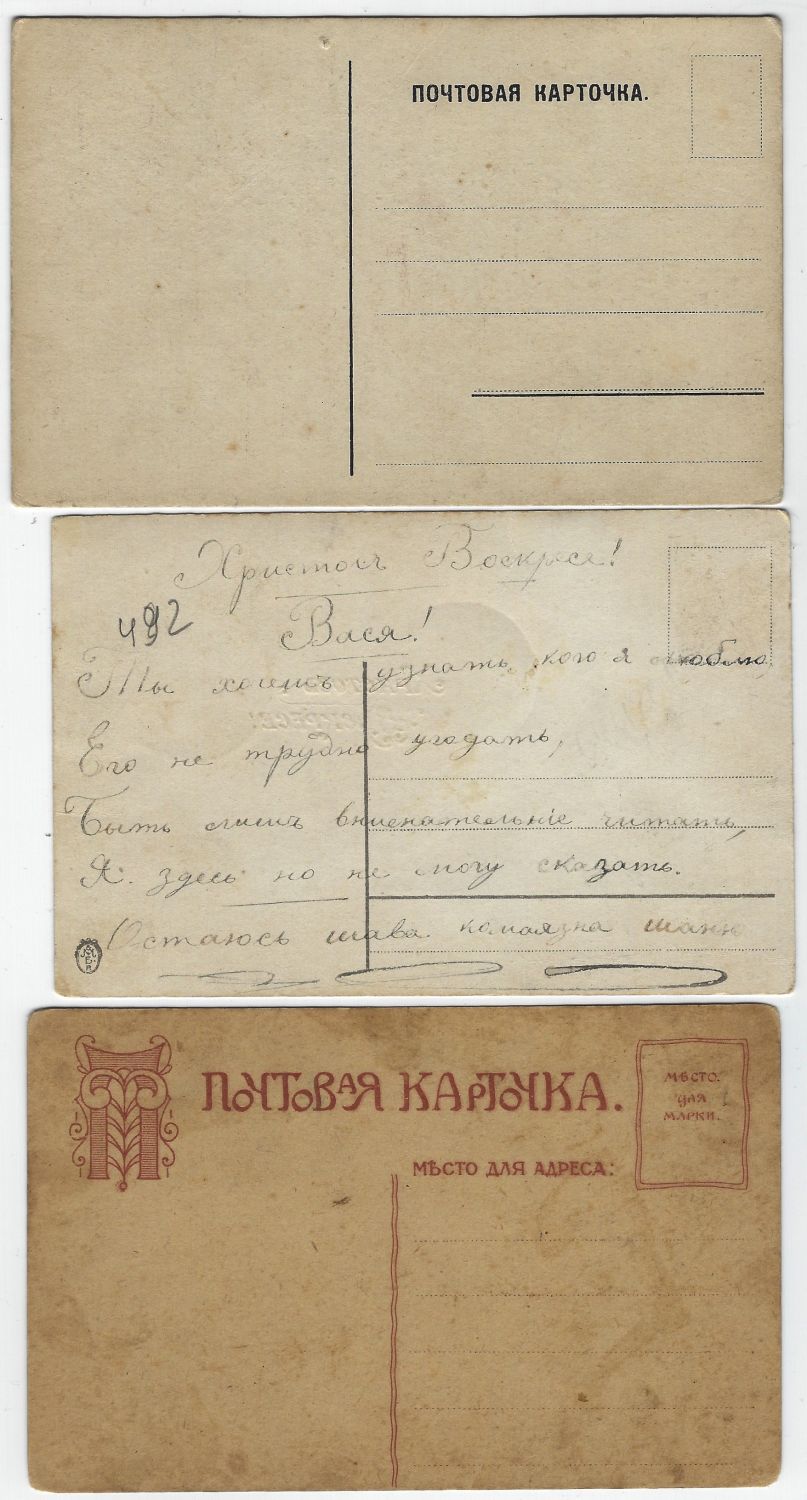 ПОЧТОВАЯ КАРТОЧКА.
Христосъ Воскресе!
492
Вася!
Ты хочешь узнать кого я люблю,
Его не трудно угодать,
Быть лишь внимательнiе читать,
Я здесь но не могу сказать.
Остаюсь
ПОЧТОВАЯ КАРТОЧКА.
МѢСТО
ДЛЯ
МАРКИ.
МѢСТО ДЛЯ АДРЕСА: